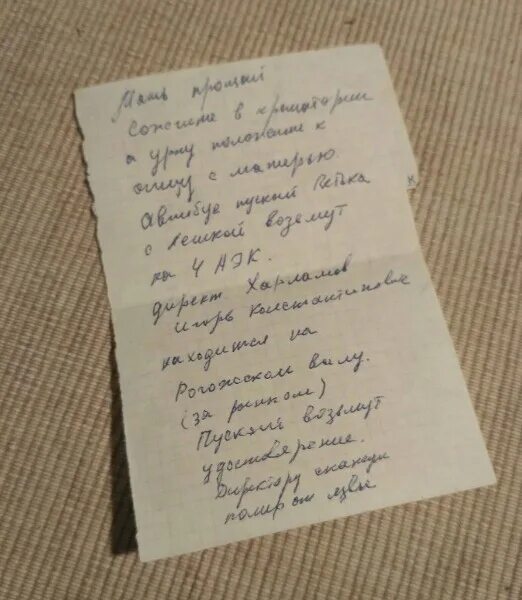 Мать прощай
Сожгите в крематории
а урну положите к
отцу с матерью.
Автобус пускай Петька
с Лешкой возмут
на 4 АЭК.
директ. Харламов
Игорь Константинович
находится на
Рогожском валу.
(за рынком)
Пускай возьмут
удостоверение.
Директору скажи
помер от язвы